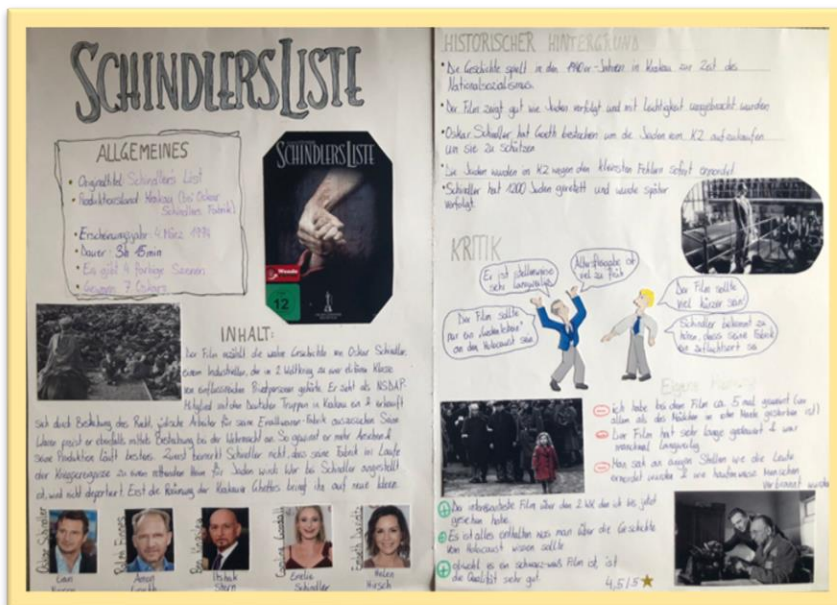 SCHINDLERS LISTE
ALLGEMEINES
• Originaltitel: Schindler's List
• Produktionsland: Krakau (in Oskar
Schindlers Fabrik)
• Erscheinungsjahr: 4. März 1994
• Dauer: 3h 15min
• Es gibt 4 farbige Szenen
• Gewann 7 Oscars
SCHINDLERS LISTE
12
INHALT:
Der Film erzählt die wahre Geschichte von Oskar Schindler,
einem Industriellen, der im 2 Weltkrieg zu einer elitären Klasse
von einflussreichen Privatpersonen gehörte. Er zieht als NSDAP-
Mitglied mit den Deutschen Truppen in Krakau ein & erkauft
sich durch Bestechung das Recht, jüdische Arbeiter für seine Emailwaren-Fabrik auszusuchen. Seine
Waren preist er ebenfalls mittels Bestechung bei der Wehrmacht an. So gewinnt er mehr Ansehen &
seine Produktion läuft bestens. Zuerst bemerkt Schindler nicht, dass seine Fabrik im Laufe
der Kriegsereignisse zu einem rettenden Heim für Juden wird. Wer bei Schindler angestellt
ist, wird nicht deportiert. Erst die Räumung des Krakauer Ghettos bringt ihn auf neue Ideen.
Oskar Schindler
Ralph Fiennes
Ben Kingsley
Caroline Goodall
Embeth Davidtz
Liam
Neeson
Amon
Goeth
Itzhak
Stern
Emilie
Schindler
Helen
Hirsch
HISTORISCHER HINTERGRUND
• Die Geschichte spielt in den 1940er-Jahren in Krakau zur Zeit des
Nationalsozialismus.
• Der Film zeigt gut wie Juden verfolgt und mit Leichtigkeit umgebracht wurden
• Oskar Schindler hat Goeth bestochen um die Juden vom KZ aufzukaufen
um sie zu schützen
• Die Juden wurden im KZ wegen den kleinsten Fehlern sofort ermordet
• Schindler hat 1200 Juden gerettet und wurde später
verfolgt.
KRITIK
Er ist stellenweise
sehr langweilig
Altersfreigabe ist
viel zu früh
Der Film sollte
nur ein "Gedenkstein"
an den Holocaust sein
Der Film sollte
viel kürzer sein!
Schindler bekommt zu
hören, dass seine Fabrik
ein Zufluchtsort sei
Eigene Meinung
ich habe bei dem Film ca. 5 mal geweint (vor
allem als das Mädchen in rote gestorben ist)
Der Film hat sehr lange gedauert & war
manchmal langweilig
Man sah an einigen Stellen wie die Leute
ermordet wurden & wie haufenweise Menschen
verbrannt wurden
Der interessanteste Film über den 2 WK den ich bis jetzt
gesehen habe.
Es ist alles enthalten was man über die Geschichte
vom Holocaust wissen sollte
obwohl es ein schwarz-weiß Film ist, ist
die Qualität sehr gut.
4,5/5